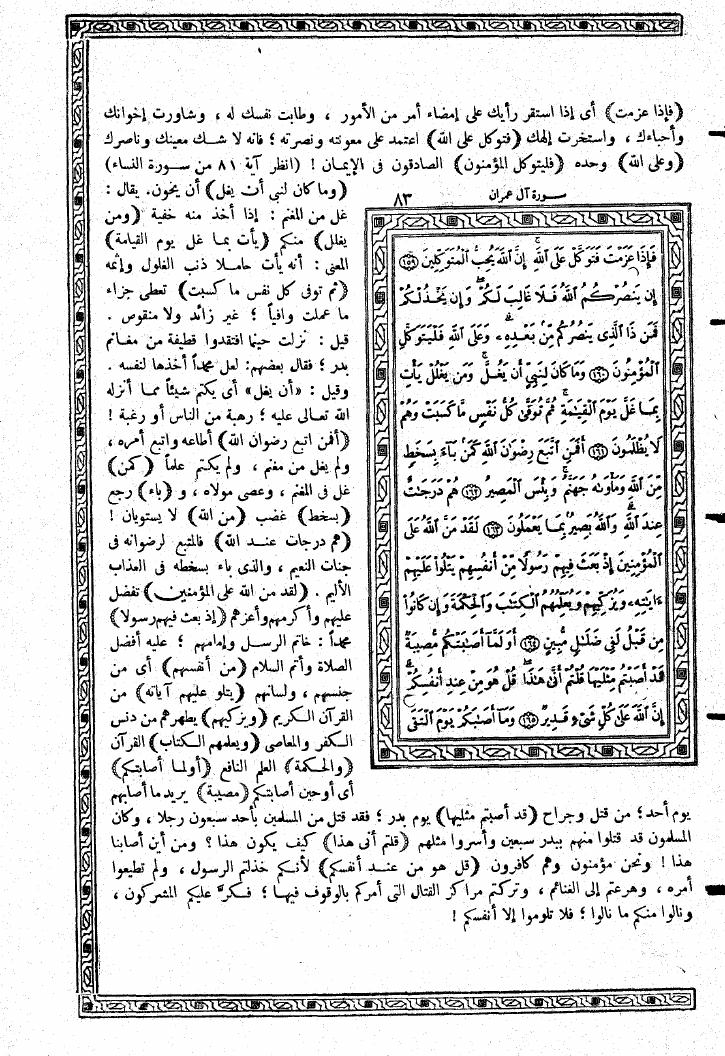 (فإذا عزمت) أى إذا استقر رأيك على إمضاء أمر من الأمور ، وطابت نفسك له ، وشاورت إخوانك
وأحباءك ، واستخرت إلهك (فتوكل على الله) اعتمد على معونته ونصرته ؛ فانه لا شك معينك وناصرك
(وعلى الله) وحده (فليتوكل المؤمنون) الصادقون فى الإيمان ! (انظر آية ٨١ من سورة النساء)
(وما كان لنبي أن يغل) أن يخون. يقال :
غل من المغنم : إذا أخذ منه خفية (ومن
يغلل) منكم (يأت بما غل يوم القيامة)
المعنى : أنه يأت حاملا ذنب الغلول وإثمه
(ثم توفى كل نفس ما كسبت) تعطى جزاء
ما عملت وافياً ؛ غير زائد ولا منقوص .
قيل : نزلت حينما افتقدوا قطيفة من مغانم
بدر ؛ فقال بعضهم: لعل محمداً أخذها لنفسه .
وقيل : «أن يغل» أى يكتم شيئاً مما أنزله
الله تعالى عليه ؛ رهبة من الناس أو رغبة !
(أفمن اتبع رضوان الله) أطاعه واتبع أمره ،
ولم يغل من مغنم ، ولم يكتم علماً (كمن)
غل فى المغنم ، وعصى مولاه ، و (باء) رجع
(بسخط) غضب (من الله) لا يستويان !
(هم درجات عند الله) فالمتبع لرضوانه فى
جنات النعيم ، والذى باء بسخطه فى العذاب
الأليم . (لقد من الله على المؤمنين) تفضل
عليهم وأكرمهم وأعزهم (إذ بعث فيهم رسولا)
محمداً : خاتم الرسل وإمامهم ؛ عليه أفضل
الصلاة وأتم السلام (من أنفسهم) أى من
جنسهم ، ولسانهم (يتلو عليهم آياته) من
القرآن الكريم (ويزكيهم) يطهرهم من دنس
الكفر والمعاصى (ويعلمهم الكتاب) القرآن
(والحكمة) العلم النافع (أولما أصابتكم)
أى أوحين أصابتكم (مصيبة) يريد ما أصابهم
سورة آل عمران
٨٣
فَإِذَا عَزَمْتَ فَتَوَكَّلْ عَلَى ٱللَّهِ إِنَّ ٱللَّهَ يُحِبُّ ٱلْمُتَوَكِّلِينَ ١٥٩
إِن يَنصُرْكُمُ ٱللَّهُ فَلَا غَالِبَ لَكُمْ وَإِن يَخْذُلْكُمْ
فَمَن ذَا ٱلَّذِى يَنصُرُكُم مِّنۢ بَعْدِهِۦ وَعَلَى ٱللَّهِ فَلْيَتَوَكَّلِ
ٱلْمُؤْمِنُونَ ١٦٠ وَمَا كَانَ لِنَبِىٍّ أَن يَغُلَّ وَمَن يَغْلُلْ يَأْتِ
بِمَا غَلَّ يَوْمَ ٱلْقِيَٰمَةِ ثُمَّ تُوَفَّىٰ كُلُّ نَفْسٍ مَّا كَسَبَتْ وَهُمْ
لَا يُظْلَمُونَ ١٦١ أَفَمَنِ ٱتَّبَعَ رِضْوَٰنَ ٱللَّهِ كَمَنۢ بَآءَ بِسَخَطٍ
مِّنَ ٱللَّهِ وَمَأْوَىٰهُ جَهَنَّمُ وَبِئْسَ ٱلْمَصِيرُ ١٦٢ هُمْ دَرَجَٰتٌ
عِندَ ٱللَّهِ وَٱللَّهُ بَصِيرٌۢ بِمَا يَعْمَلُونَ ١٦٣ لَقَدْ مَنَّ ٱللَّهُ عَلَى
ٱلْمُؤْمِنِينَ إِذْ بَعَثَ فِيهِمْ رَسُولًا مِّنْ أَنفُسِهِمْ يَتْلُوا۟ عَلَيْهِمْ
ءَايَٰتِهِۦ وَيُزَكِّيهِمْ وَيُعَلِّمُهُمُ ٱلْكِتَٰبَ وَٱلْحِكْمَةَ وَإِن كَانُوا۟
مِن قَبْلُ لَفِى ضَلَٰلٍ مُّبِينٍ ١٦٤ أَوَلَمَّآ أَصَٰبَتْكُم مُّصِيبَةٌ
قَدْ أَصَبْتُم مِّثْلَيْهَا قُلْتُمْ أَنَّىٰ هَٰذَا قُلْ هُوَ مِنْ عِندِ أَنفُسِكُمْ
إِنَّ ٱللَّهَ عَلَىٰ كُلِّ شَىْءٍ قَدِيرٌ ١٦٥ وَمَآ أَصَٰبَكُمْ يَوْمَ ٱلْتَقَى
يوم أحد ؛ من قتل وجراح (قد أصبتم مثليها) يوم بدر ؛ فقد قتل من المسلمين بأحد سبعون رجلا ، وكان
المسلمون قد قتلوا منهم ببدر سبعين وأسروا مثلهم (قلتم أنى هذا) كيف يكون هذا ؟ ومن أين أصابنا
هذا ! ونحن مؤمنون وهم كافرون (قل هو من عند أنفسكم) لأنكم خذلتم الرسول ، ولم تطيعوا
أمره ، وهرعتم إلى الغنائم ، وتركتم مراكز القتال التى أمركم بالوقوف فيها ؛ فكرَّ عليكم المشركون ،
ونالوا منكم ما نالوا ؛ فلا تلوموا إلا أنفسكم !